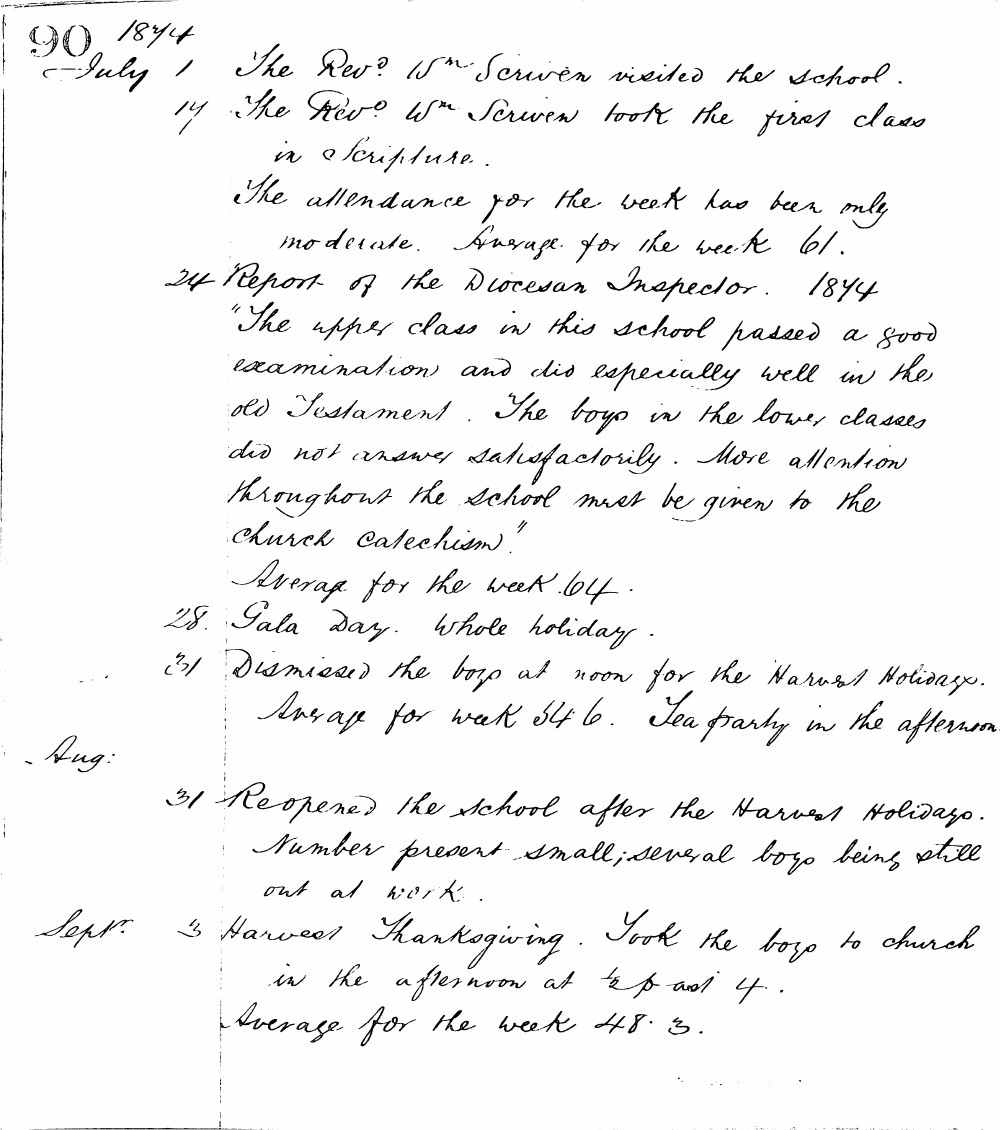 90 1874
July 1 The Revd. Wm Scriven visited the school.
17 The Revd. Wm Scriven took the first class
in Scripture.
The attendance for the week has been only
moderate. Average for the week 61.
24 Report of the Diocesan Inspector. 1874
"The upper class in this school passed a good
examination and did especially well in the
old Testament. The boys in the lower classes
did not answer satisfactorily. More attention
throughout the school must be given to the
church catechism".
Average for the week 64.
28. Gala Day. Whole holiday.
31 Dismissed the boys at noon for the Harvest Holidays.
Average for week 54 6. Tea party in the afternoon
Aug:
31 Reopened the school after the Harvest Holidays.
Number present small; several boys being still
out at work.
Septr. 3 Harvest Thanksgiving. Took the boys to church
in the afternoon at ½ past 4.
Average for the week 48.3.